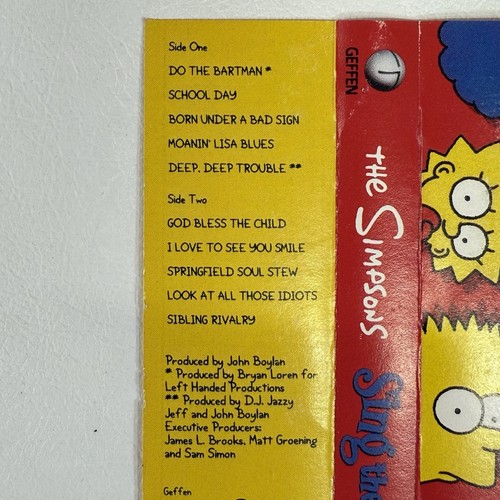 Side One
DO THE BARTMAN *
SCHOOL DAY
BORN UNDER A BAD SIGN
MOANIN' LISA BLUES
DEEP, DEEP TROUBLE **
Side Two
GOD BLESS THE CHILD
I LOVE TO SEE YOU SMILE
SPRINGFIELD SOUL STEW
LOOK AT ALL THOSE IDIOTS
SIBLING RIVALRY
Produced by John Boylan
* Produced by Bryan Loren for
Left Handed Productions
** Produced by D.J. Jazzy
Jeff and John Boylan
Executive Producers:
James L. Brooks, Matt Groening
and Sam Simon
Geffen
GEFFEN
THE SIMPSONS
Sing the